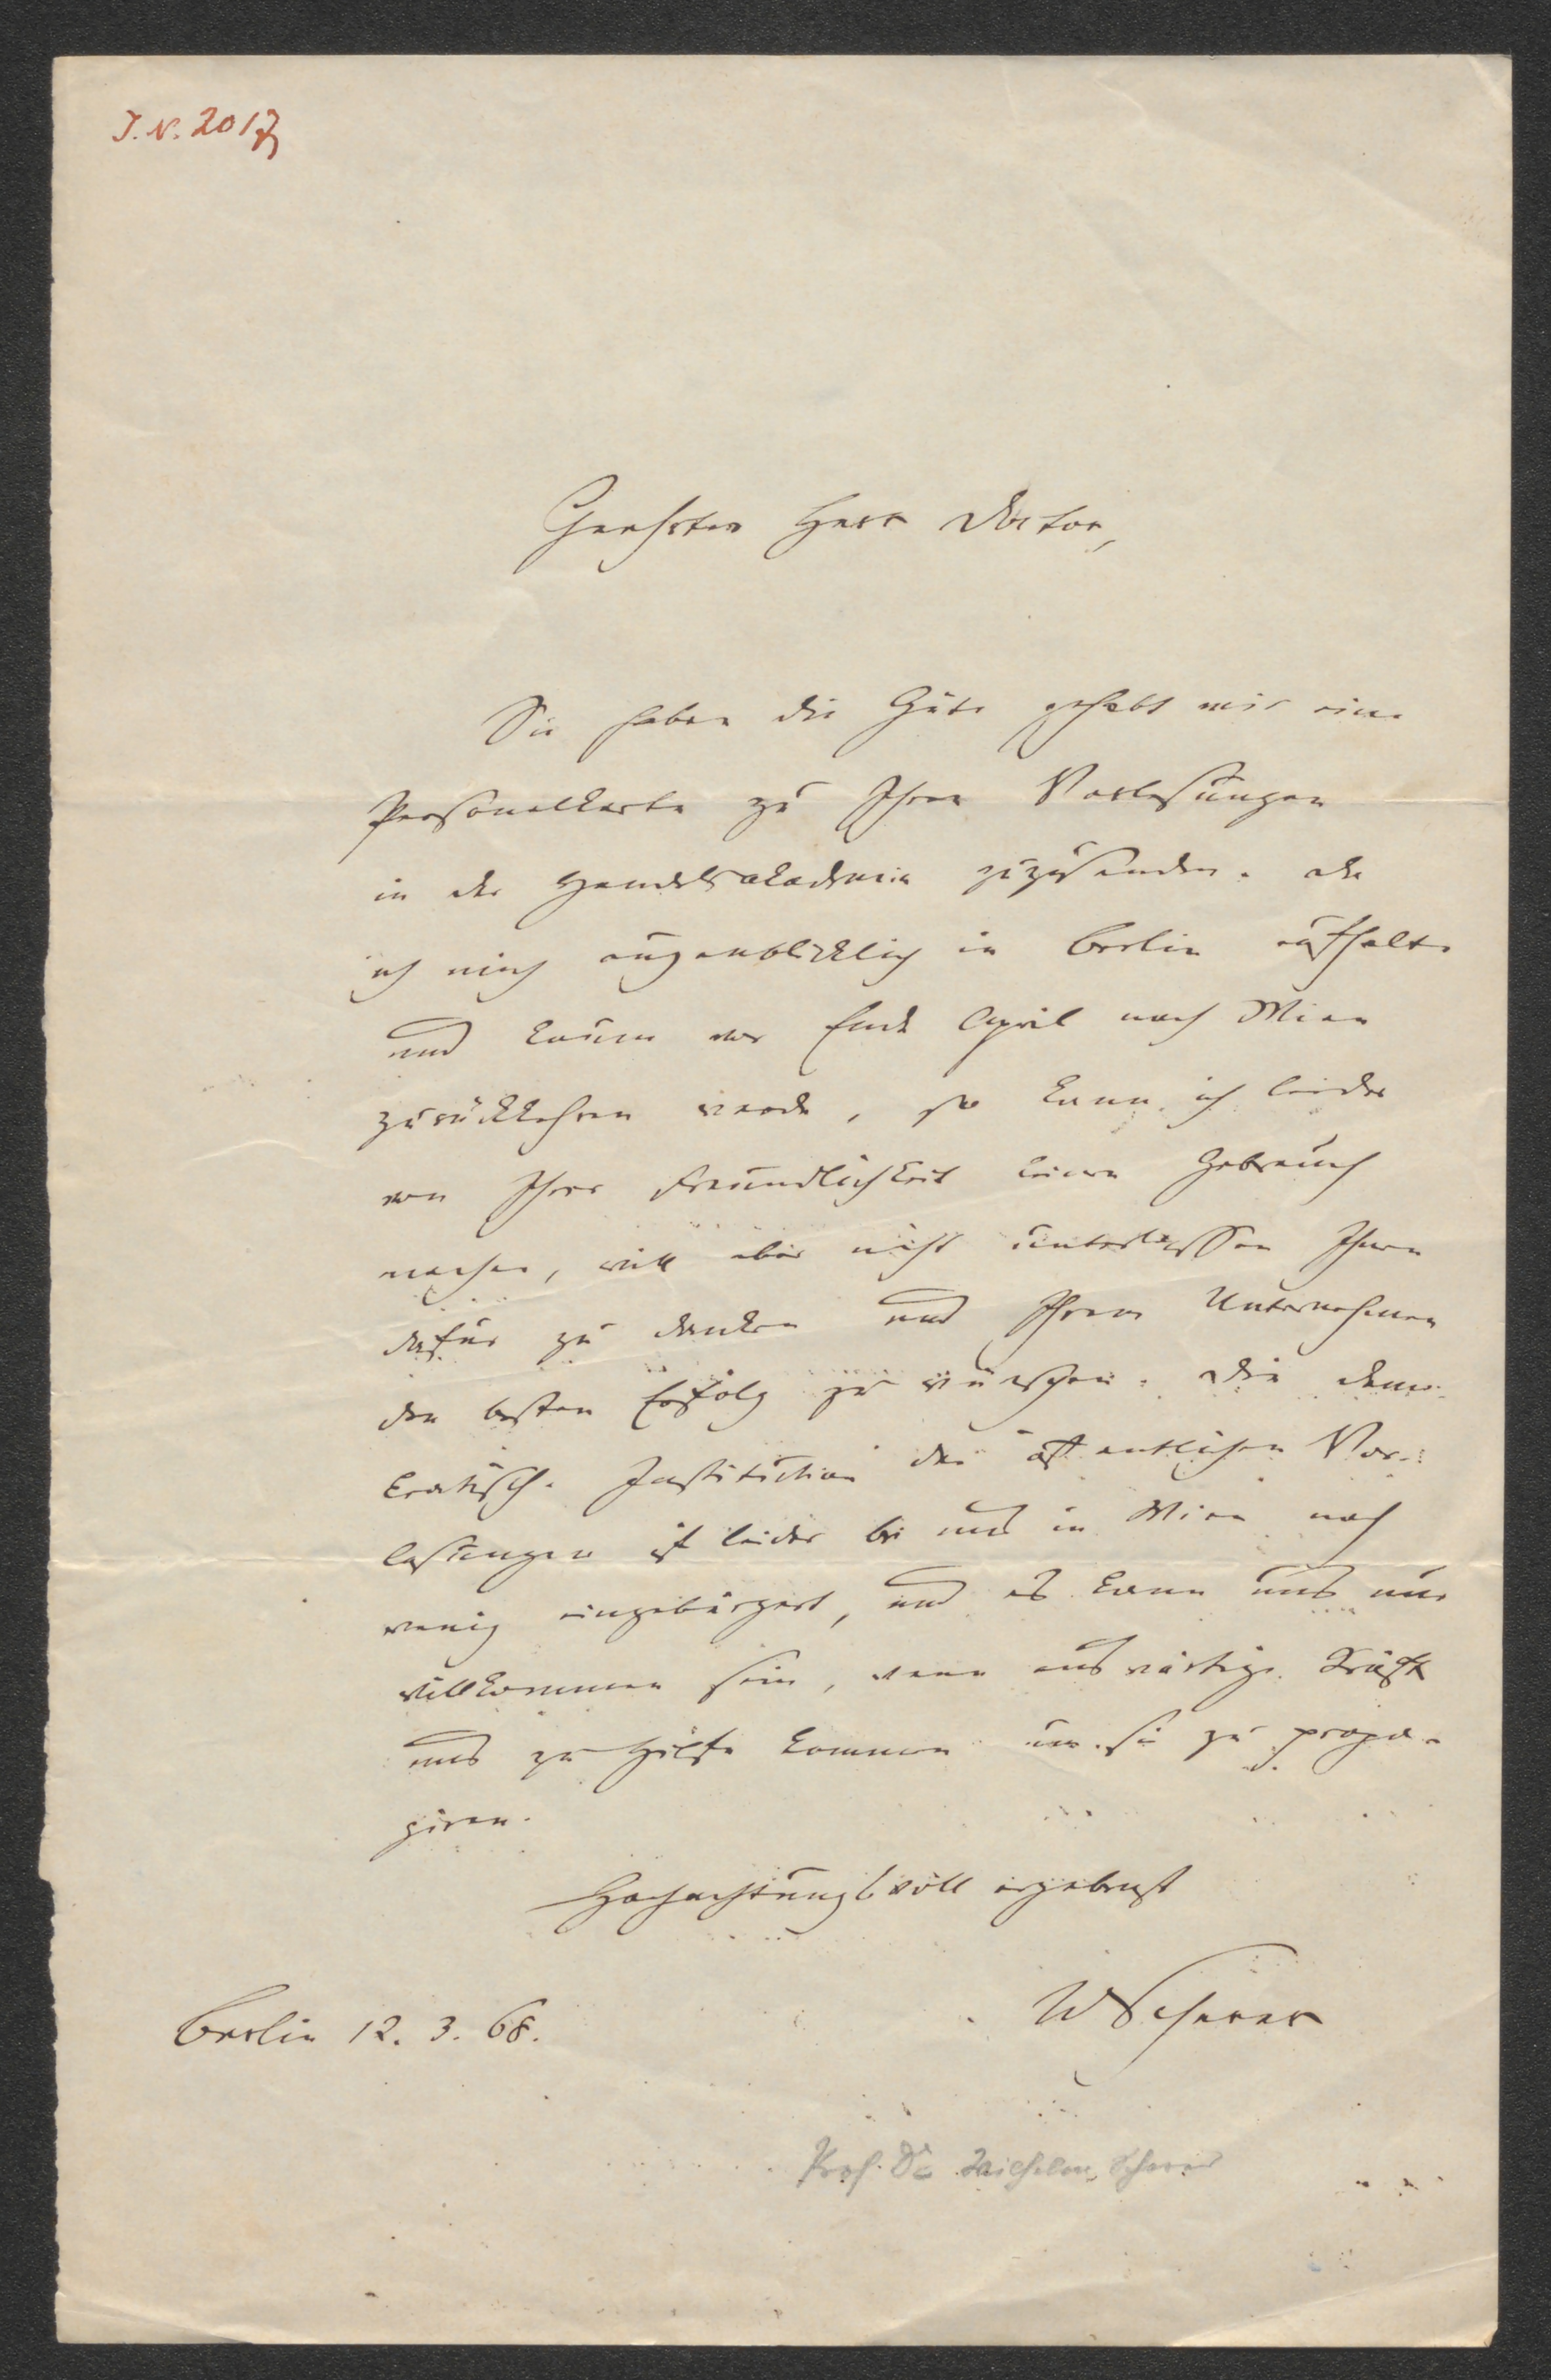 J.N. 2017
Geehrter Herr Doctor,
Sie haben die Güte gehabt mir eine
Personalkarte zu Ihren Vorlesungen
in der Handelsakademie zuzusenden. Da
ich mich augenblicklich in Berlin aufhalte
und kaum vor Ende April nach Wien
zurückkehren werde, so kann ich leider
von Ihrer Freundlichkeit keinen Gebrauch
machen, will aber nicht unterlassen Ihnen
dafür zu danken und Ihrem Unternehmen
den besten Erfolg zu wünschen. Die demo-
kratische Institution der öffentlichen Vor-
lesungen ist leider bei uns in Wien noch
wenig eingebürgert, und es kann uns nur
willkommen sein, wenn auswärtige Kräfte
uns zu Hilfe kommen um sie zu propa-
giren.
Hochachtungsvoll ergebenst
WScherer
Berlin 12. 3. 68.
Prof. Dr Wilhelm Scherer